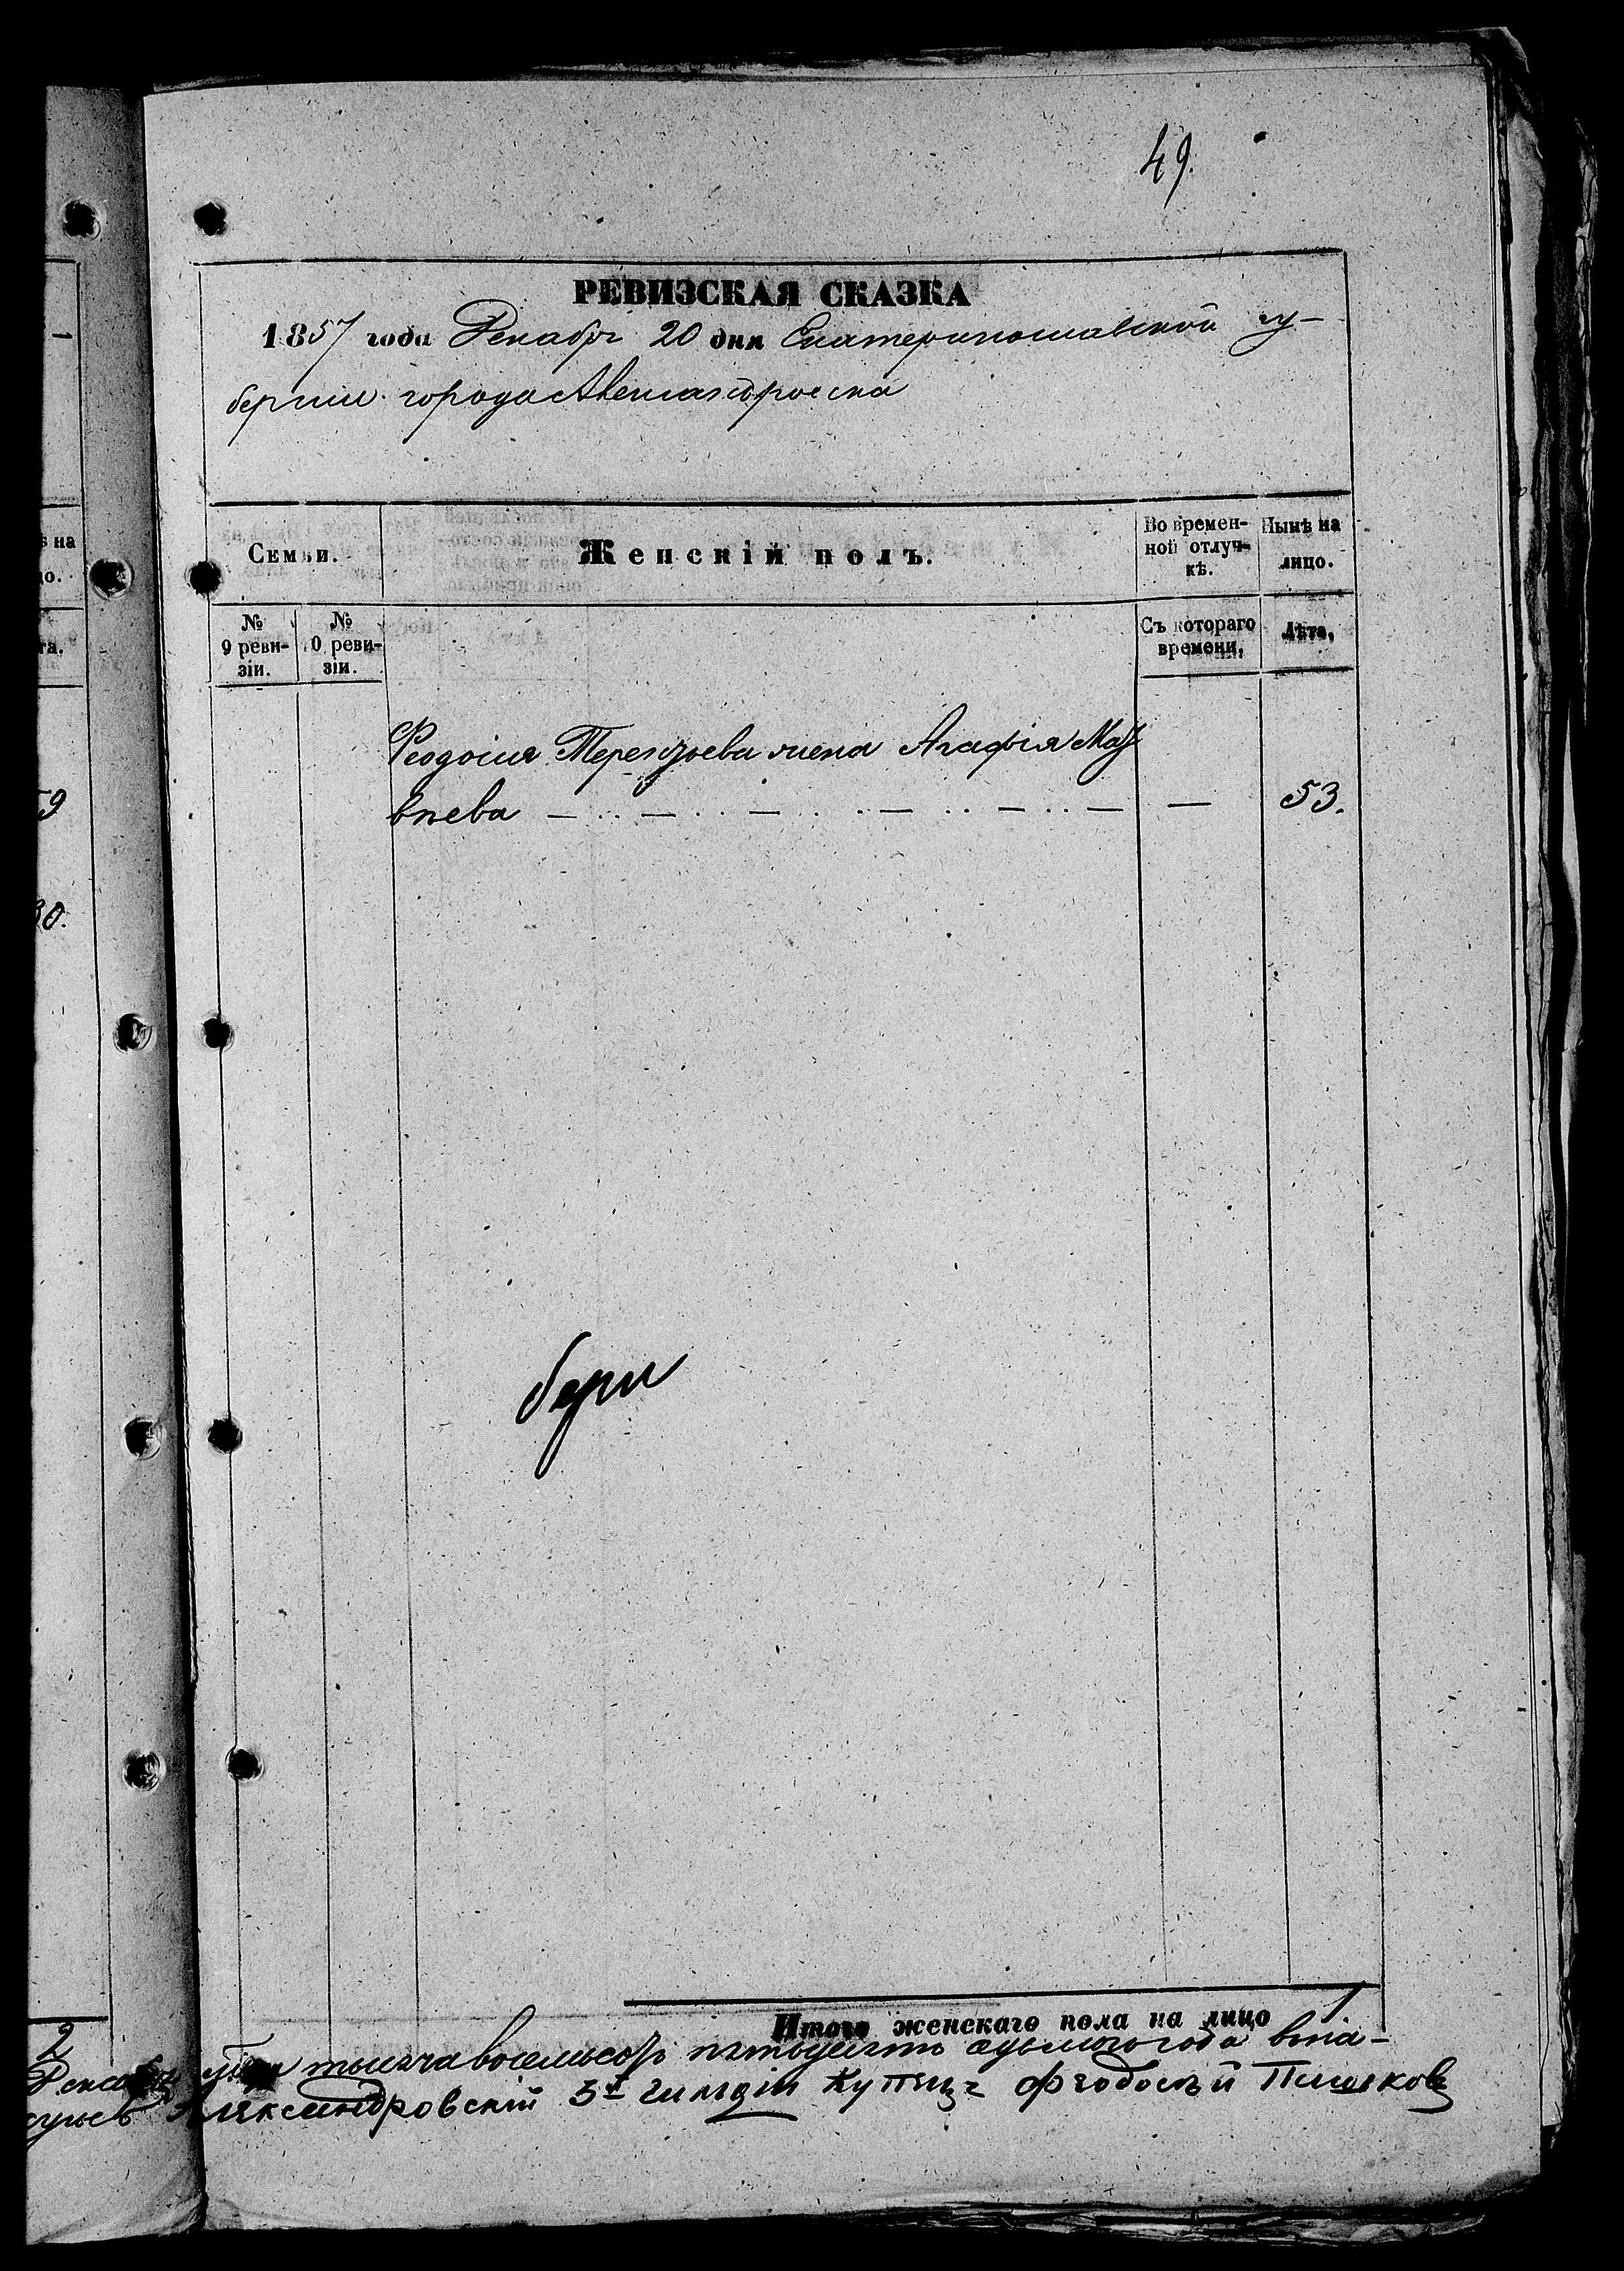 49.
РЕВИЗСКАЯ СКАЗКА
1857 года Декабря 20 дня Екатеринославской гу-
берніи города Александровска
Семьи.
Женскій полъ.
Во времен-
ной отлуч-
кѣ.
Нынѣ на
лицо.
№
9 реви-
зіи.
№
10 реви-
зіи.
Съ котораго
времени.
Лѣта.
Феодосія Терентьева жена Агафія Мат
вѣева — — 53.
бери
Итого женскаго пола на лицо 1
тысяча восемьсотъ пятьдесятъ седьмого года
Александровскій 3й гильдіи Купецъ Феодосѣй
ѣ на
цо.
та.
59
30.
2